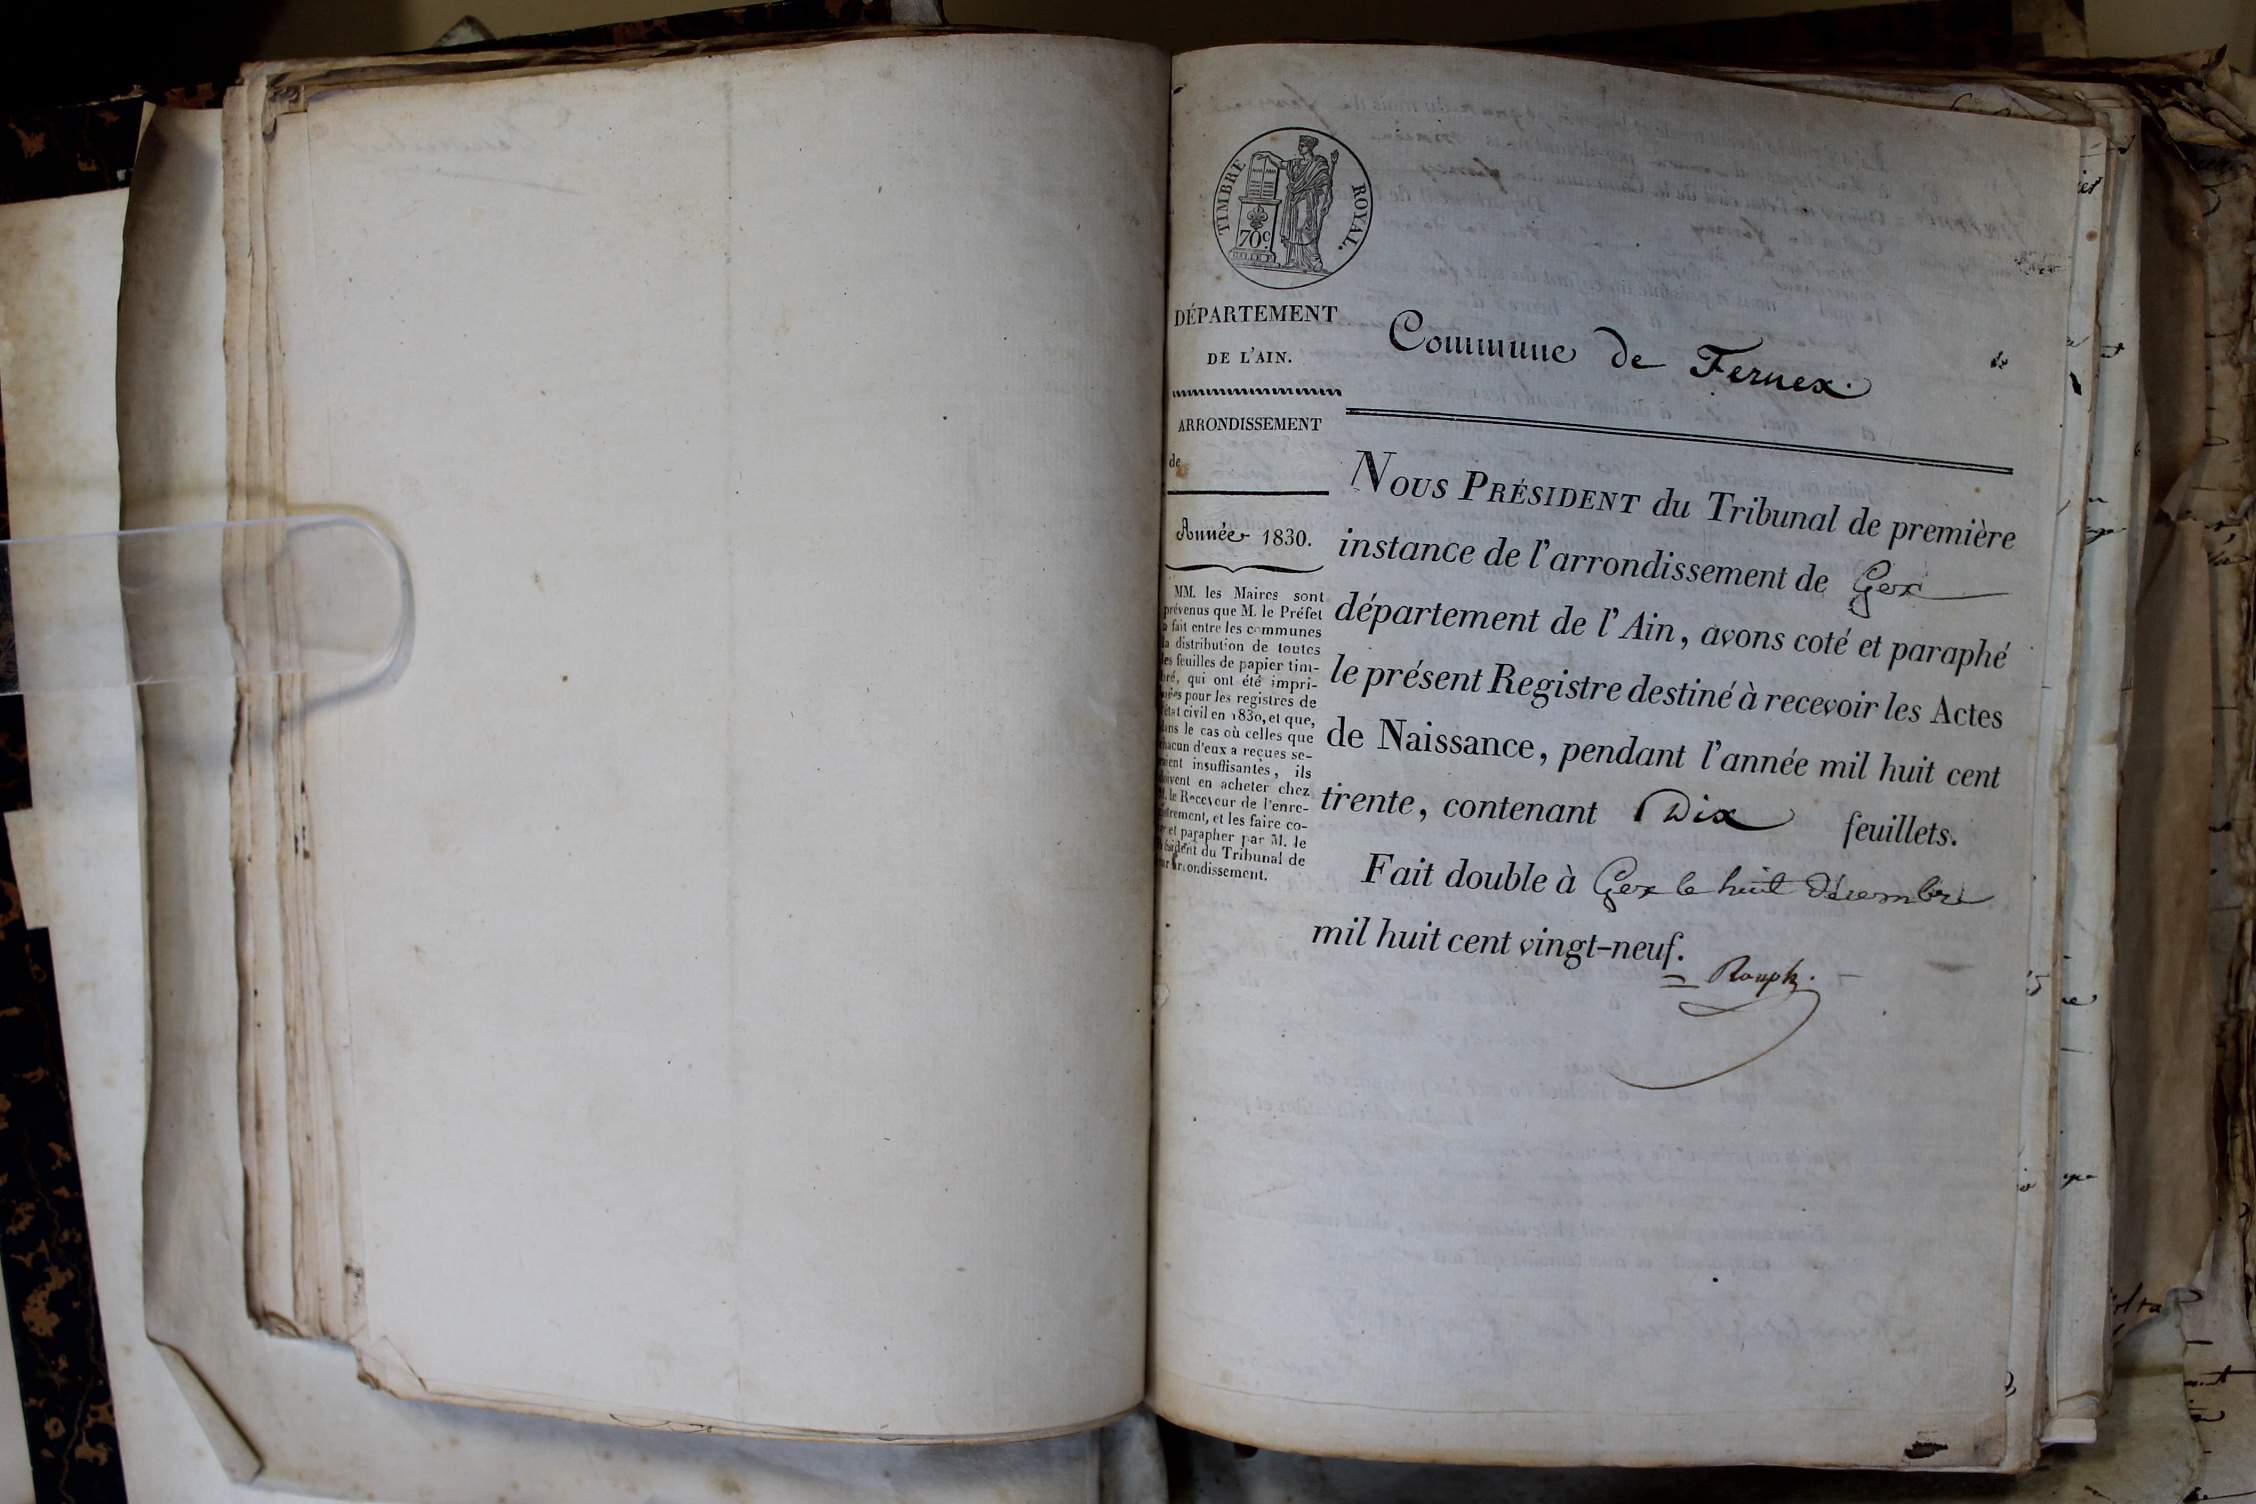 TIMBRE ROYAL.
70 c.
DÉPARTEMENT
DE L'AIN.
ARRONDISSEMENT
de
Année 1830.
MM. les Maires sont
prévenus que M. le Préfet
a fait entre les communes
la distribution de toutes
les feuilles de papier tim-
bré, qui ont été impri-
mées pour les registres de
l'état civil en 1830, et que,
dans le cas où celles que
chacun d'eux a reçues se-
raient insuffisantes, ils
doivent en acheter chez
M. le Receveur de l'enre-
gistrement, et les faire co-
ter et parapher par M. le
Président du Tribunal de
leur arrondissement.
Commune de Fernex.
NOUS PRÉSIDENT du Tribunal de première
instance de l'arrondissement de Gex
département de l'Ain, avons coté et paraphé
le présent Registre destiné à recevoir les Actes
de Naissance, pendant l'année mil huit cent
trente, contenant Dix feuillets.
Fait double à Gex le huit décembre
mil huit cent vingt-neuf.
Rouph.